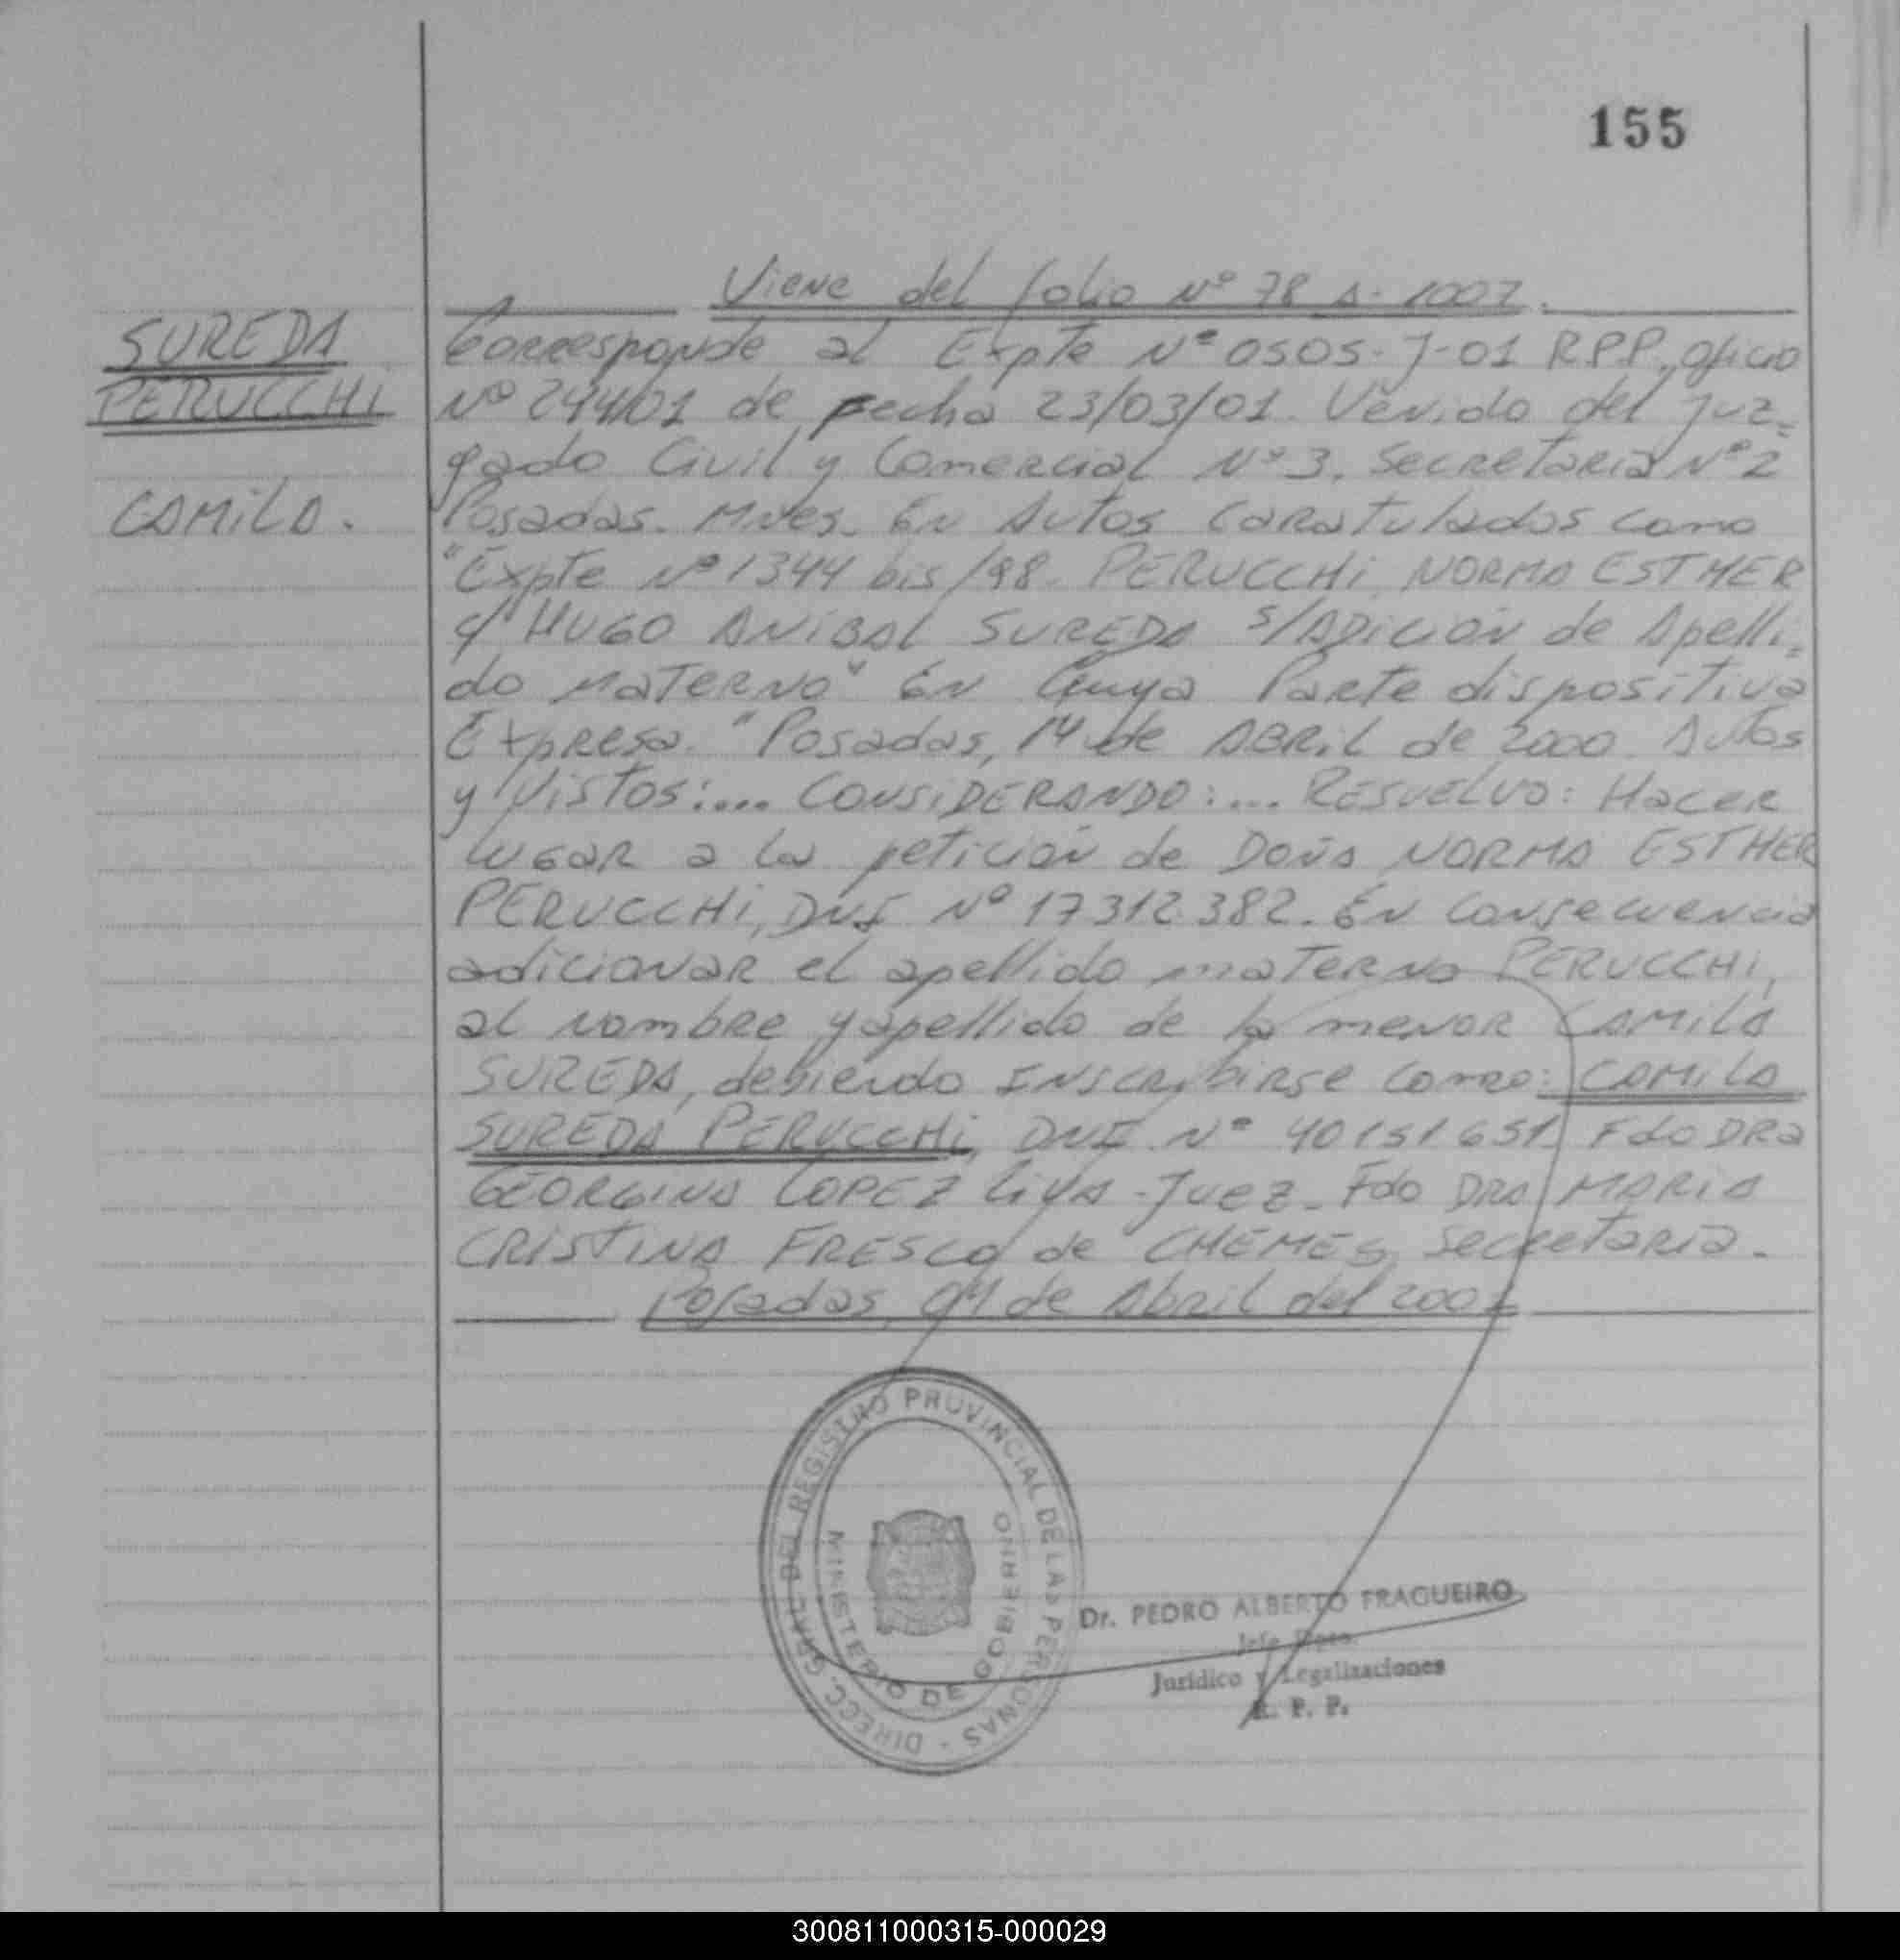 155
Viene del folio Nº 78 A. 1007.
SUREDA
PERUCCHI
CAMILA.
Corresponde al Expte Nº 0505-J-01 RPP, oficio
Nº 244/01 de fecha 23/03/01. Venido del Juz=
gado Civil y Comercial Nº 3. Secretaria Nº 2
Posadas. Mnes. En Autos Caratulados como
"Expte Nº 1344 bis/98. PERUCCHI NORMA ESTHER
c/ HUGO ANIBAL SUREDA S/ADICION de Apelli=
do MATERNO" En Cuya Parte dispositiva
Expresa. "Posadas, 14 de ABRIL de 2000. Autos
y Vistos:... CONSIDERANDO:... RESUELVO: HACER
LUGAR a la petición de DOÑA NORMA ESTHER
PERUCCHI, DNI Nº 17312382. En Consecuencia
adicionar el apellido materno PERUCCHI,
al nombre y apellido de la menor CAMILA
SUREDA, debiendo INSCRIBIRSE como: CAMILA
SUREDA PERUCCHI, DNI Nº 40151651. Fdo DRA
GEORGINA LOPEZ Liva - Juez. Fdo DRA MARIA
CRISTINA FRESCO de CHEMES, Secretaria.
Posadas, 04 de Abril del 2001
DIRECC. GRAL. DEL REGISTRO PROVINCIAL DE LAS PERSONAS -
MINISTERIO DE GOBIERNO
Dr. PEDRO ALBERTO FRAGUEIRO
Jefe Dpto.
Jurídico y Legalizaciones
R. P. P.
300811000315-000029